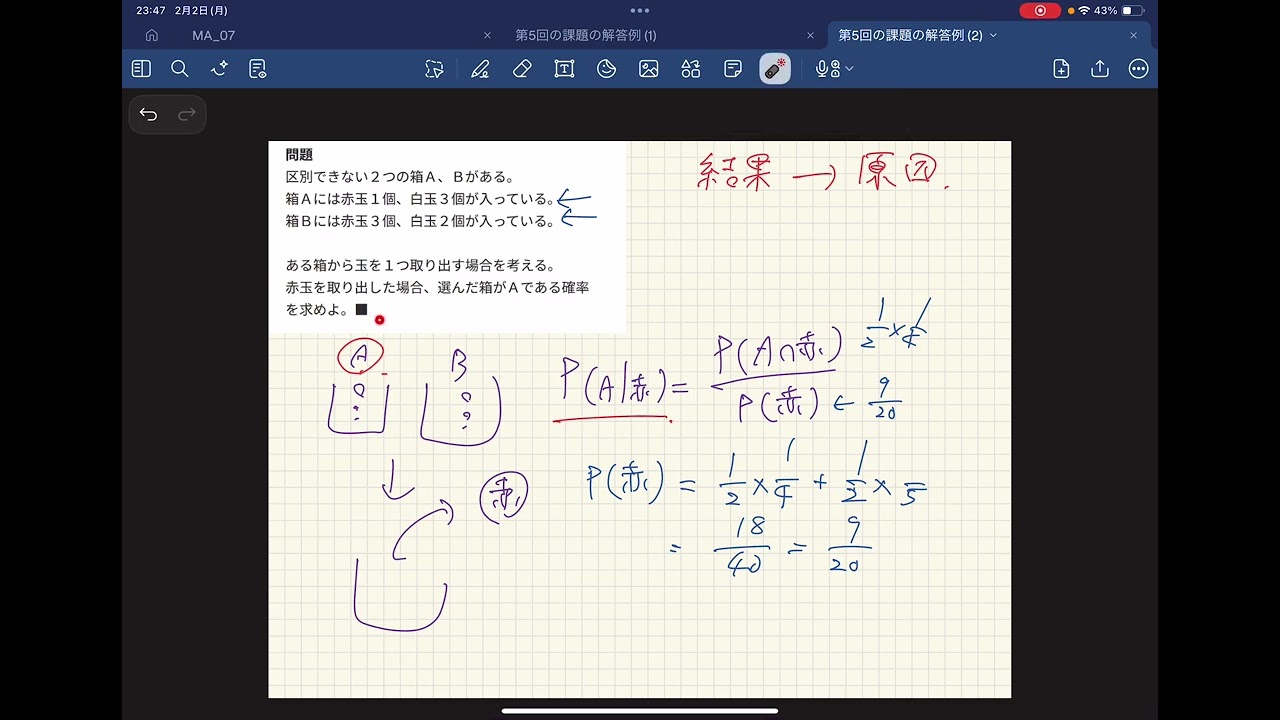 23:47 2月2日(月)
43%
MA_07
第5回の課題の解答例 (1)
第5回の課題の解答例 (2)
問題
区別できない２つの箱Ａ、Ｂがある。
箱Ａには赤玉１個、白玉３個が入っている。
箱Ｂには赤玉３個、白玉２個が入っている。
ある箱から玉を１つ取り出す場合を考える。
赤玉を取り出した場合、選んだ箱がＡである確率
を求めよ。■
結果 → 原因.
A B
P(A|赤) = P(A∩赤) / P(赤) ← 9/20
1/2 × 1/4
赤
P(赤) = 1/2 × 1/4 + 1/2 × /5
= 18/40 = 9/20